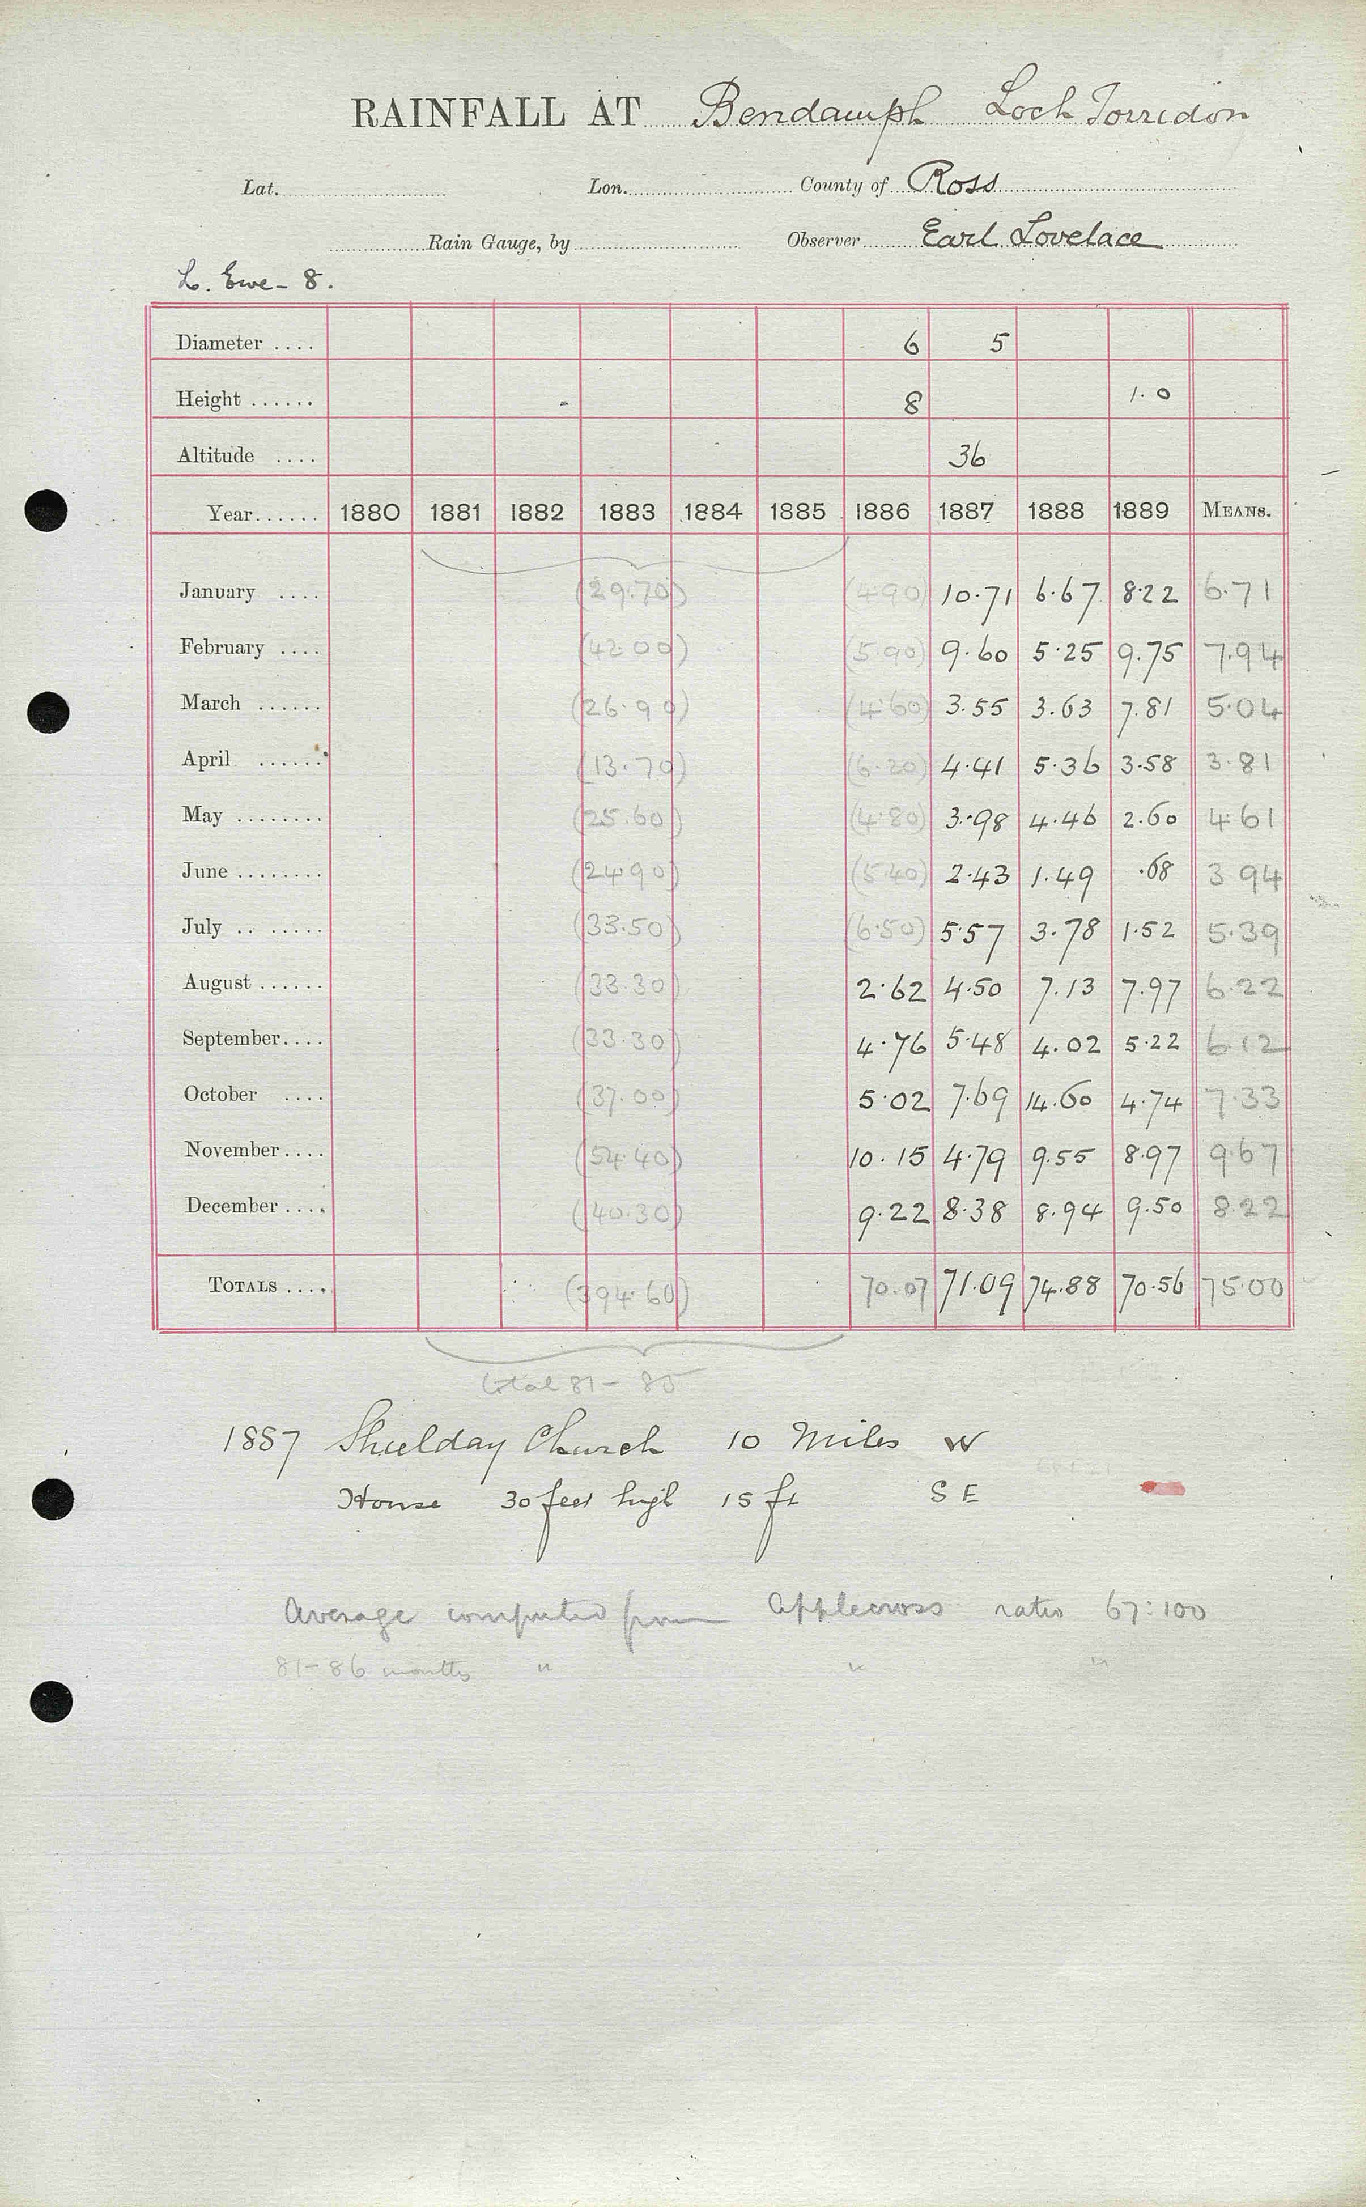 RAINFALL AT Bendamph Loch Torridon
Lat. Lon. County of Ross
Rain Gauge, by Observer Earl Lovelace
L. Ewe - 8.
Diameter .... 6 5
Height ...... 8 1.0
Altitude .... 36
Year...... 1880 1881 1882 1883 1884 1885 1886 1887 1888 1889 MEANS.
January .... (29.70) (4.90) 10.71 6.67 8.22 6.71
February .... (42.00) (5.90) 9.60 5.25 9.75 7.94
March ...... (26.90) (4.60) 3.55 3.63 7.81 5.04
April ...... (13.70) (6.20) 4.41 5.36 3.58 3.81
May ........ (25.60) (4.80) 3.98 4.46 2.60 4.61
June ........ (24.90) (5.40) 2.43 1.49 .68 3 94
July .. ..... (33.50) (6.50) 5.57 3.78 1.52 5.39
August ...... (33.30) 2.62 4.50 7.13 7.97 6.22
September.... (33.30) 4.76 5.48 4.02 5.22 6.12
October .... (37.00) 5.02 7.69 14.60 4.74 7.33
November.... (54.40) 10.15 4.79 9.55 8.97 9.67
December .... (40.30) 9.22 8.38 8.94 9.50 8.22
TOTALS .... (394.60) 70.07 71.09 74.88 70.56 75.00
total 81-85
1887 Shielday Church 10 Miles W
House 30 feet high 15 ft S E
Average computed from Applecross ratio 67:100
81-86 months " " "